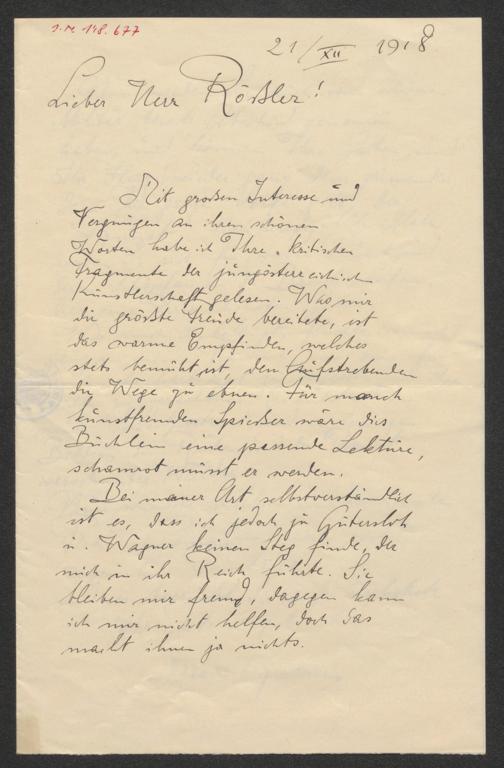 I.N. 148.677
21/XII 1918
Lieber Herr Rößler!
Mit grossen Interesse und
Vergnügen an ihren schönen
Worten habe ich Ihre „kritischen
Fragmente der jungösterreichisch
Künstlerschaft gelesen. Was mir
die größte Freude bereitete, ist
das warme Empfinden, welches
stets bemüht ist, den Aufstrebenden
die Wege zu ebnen. Für manch
kunstfremden Spießer wäre dies
Büchlein eine passende Lektüre,
schamrot müsst er werden.
Bei meiner Art selbstverständlich
ist es, dass ich jedoch zu Gütersloh
u. Wagner keinen Steg finde, der
mich in ihr Reich führte. Sie
bleiben mir fremd, dagegen kann
ich mir nicht helfen, doch das
macht ihnen ja nichts.